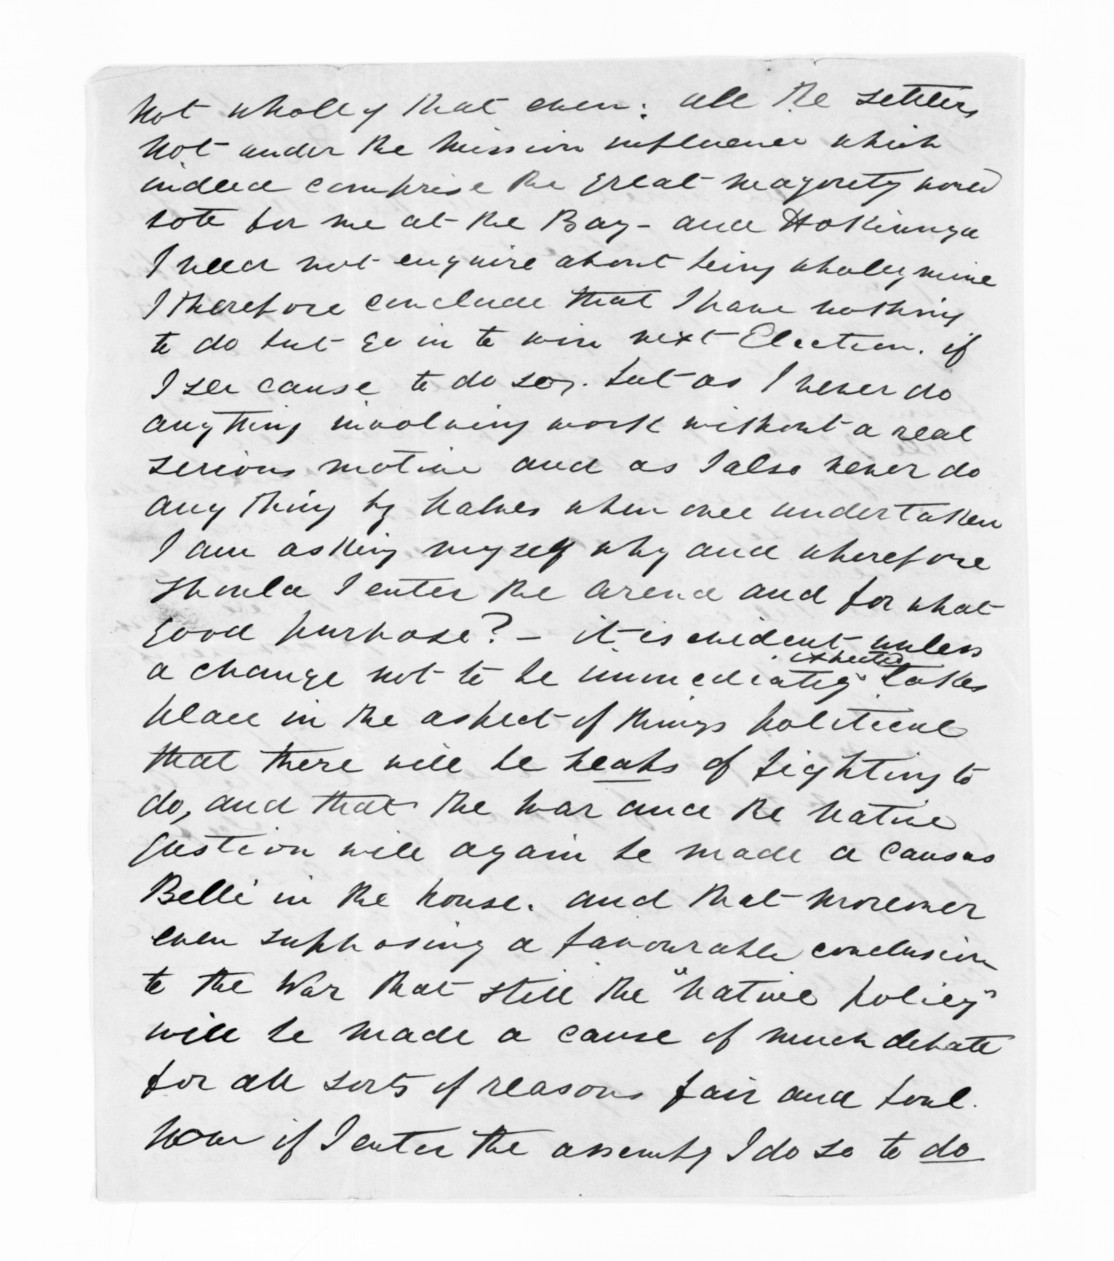 Not wholly that even: all the settlers
Not under the Mission influence which
indeed comprise the great majority would
vote for me at the Bay - and Hokianga
I need not enquire about being wholey mine
I therefore conclude that I have nothing
to do but go in to win next Election. if
I see cause to do so. but as I never do
any thing involving work without a real
serious motive and as I also never do
any thing by halves when once undertaken
I am asking myself why and wherefore
should I enter the arena and for what
good purpose? - it is evident unless
a change not to be immediately expected takes
place in the aspect of things political
that there will be heaps of fighting to
do, and that the War and the Native
question will again be made a causus
Belli in the house. and that moreover
even supposing a favourable conclusion
to the War that still the "Native policy"
will be made a cause of much debate
for all sorts of reasons fair and foul.
Now if I enter the assembly I do so to do